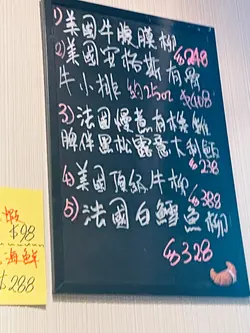 1)美國牛膜膜柳
$248
2)美國安格斯有骨
牛小排 $125oz $408
3)法國慢煮有機雞
脾伴黑松露意大利飯
$238
4)美國頂級牛柳
$388
5)法國白鱈魚柳
$328
$98
海鮮
$288